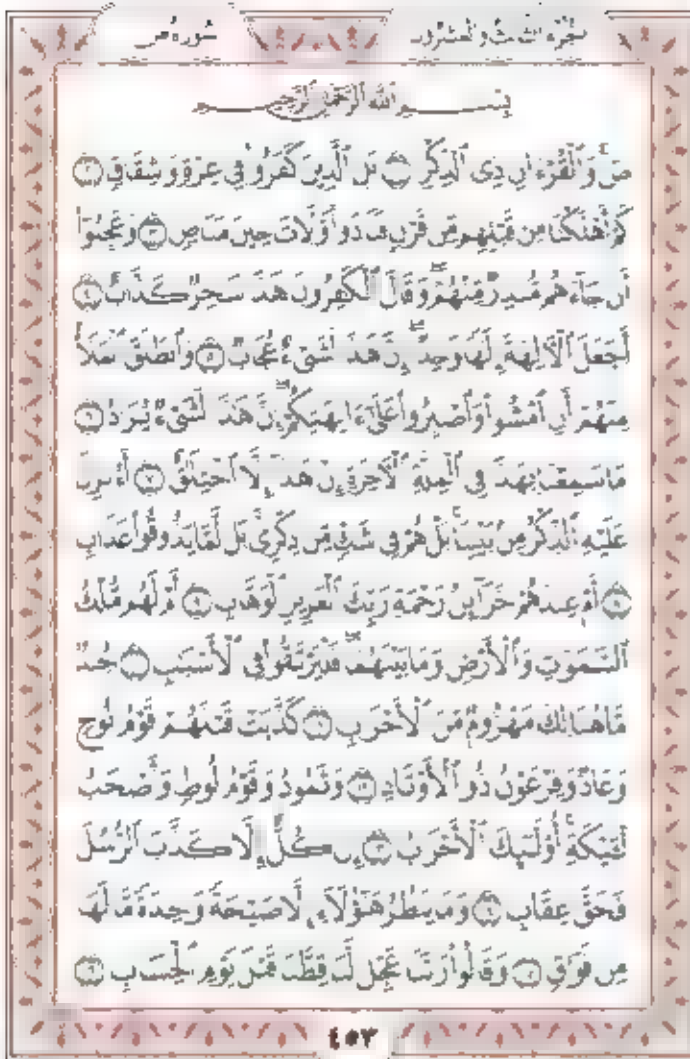 سورة ص
الجزء الثالث والعشرون
بِسْمِ اللَّهِ الرَّحْمَٰنِ الرَّحِيمِ
صٓ وَٱلْقُرْءَانِ ذِى ٱلذِّكْرِ ١ بَلِ ٱلَّذِينَ كَفَرُوا۟ فِى عِزَّةٍ وَشِقَاقٍ ٢
كَمْ أَهْلَكْنَا مِن قَبْلِهِم مِّن قَرْنٍ فَنَادَوا۟ وَّلَاتَ حِينَ مَنَاصٍ ٣ وَعَجِبُوٓا۟
أَن جَآءَهُم مُّنذِرٌ مِّنْهُمْ ۖ وَقَالَ ٱلْكَٰفِرُونَ هَٰذَا سَٰحِرٌ كَذَّابٌ ٤
أَجَعَلَ ٱلْـَٔالِهَةَ إِلَٰهًا وَٰحِدًا ۖ إِنَّ هَٰذَا لَشَىْءٌ عُجَابٌ ٥ وَٱنطَلَقَ ٱلْمَلَأُ
مِنْهُمْ أَنِ ٱمْشُوا۟ وَٱصْبِرُوا۟ عَلَىٰٓ ءَالِهَتِكُمْ ۖ إِنَّ هَٰذَا لَشَىْءٌ يُرَادُ ٦
مَا سَمِعْنَا بِهَٰذَا فِى ٱلْمِلَّةِ ٱلْـَٔاخِرَةِ إِنْ هَٰذَآ إِلَّا ٱخْتِلَٰقٌ ٧ أَءُنزِلَ
عَلَيْهِ ٱلذِّكْرُ مِنۢ بَيْنِنَا ۚ بَلْ هُمْ فِى شَكٍّ مِّن ذِكْرِى ۖ بَل لَّمَّا يَذُوقُوا۟ عَذَابِ
٨ أَمْ عِندَهُمْ خَزَآئِنُ رَحْمَةِ رَبِّكَ ٱلْعَزِيزِ ٱلْوَهَّابِ ٩ أَمْ لَهُم مُّلْكُ
ٱلسَّمَٰوَٰتِ وَٱلْأَرْضِ وَمَا بَيْنَهُمَا ۖ فَلْيَرْتَقُوا۟ فِى ٱلْأَسْبَٰبِ ١٠ جُندٌ
مَّا هُنَالِكَ مَهْزُومٌ مِّنَ ٱلْأَحْزَابِ ١١ كَذَّبَتْ قَبْلَهُمْ قَوْمُ نُوحٍ
وَعَادٌ وَفِرْعَوْنُ ذُو ٱلْأَوْتَادِ ١٢ وَثَمُودُ وَقَوْمُ لُوطٍ وَأَصْحَٰبُ
لْـَٔيْكَةِ ۚ أُو۟لَٰٓئِكَ ٱلْأَحْزَابُ ١٣ إِن كُلٌّ إِلَّا كَذَّبَ ٱلرُّسُلَ
فَحَقَّ عِقَابِ ١٤ وَمَا يَنظُرُ هَٰٓؤُلَآءِ إِلَّا صَيْحَةً وَٰحِدَةً مَّا لَهَا
مِن فَوَاقٍ ١٥ وَقَالُوا۟ رَبَّنَا عَجِّل لَّنَا قِطَّنَا قَبْلَ يَوْمِ ٱلْحِسَابِ ١٦
٤٥٣